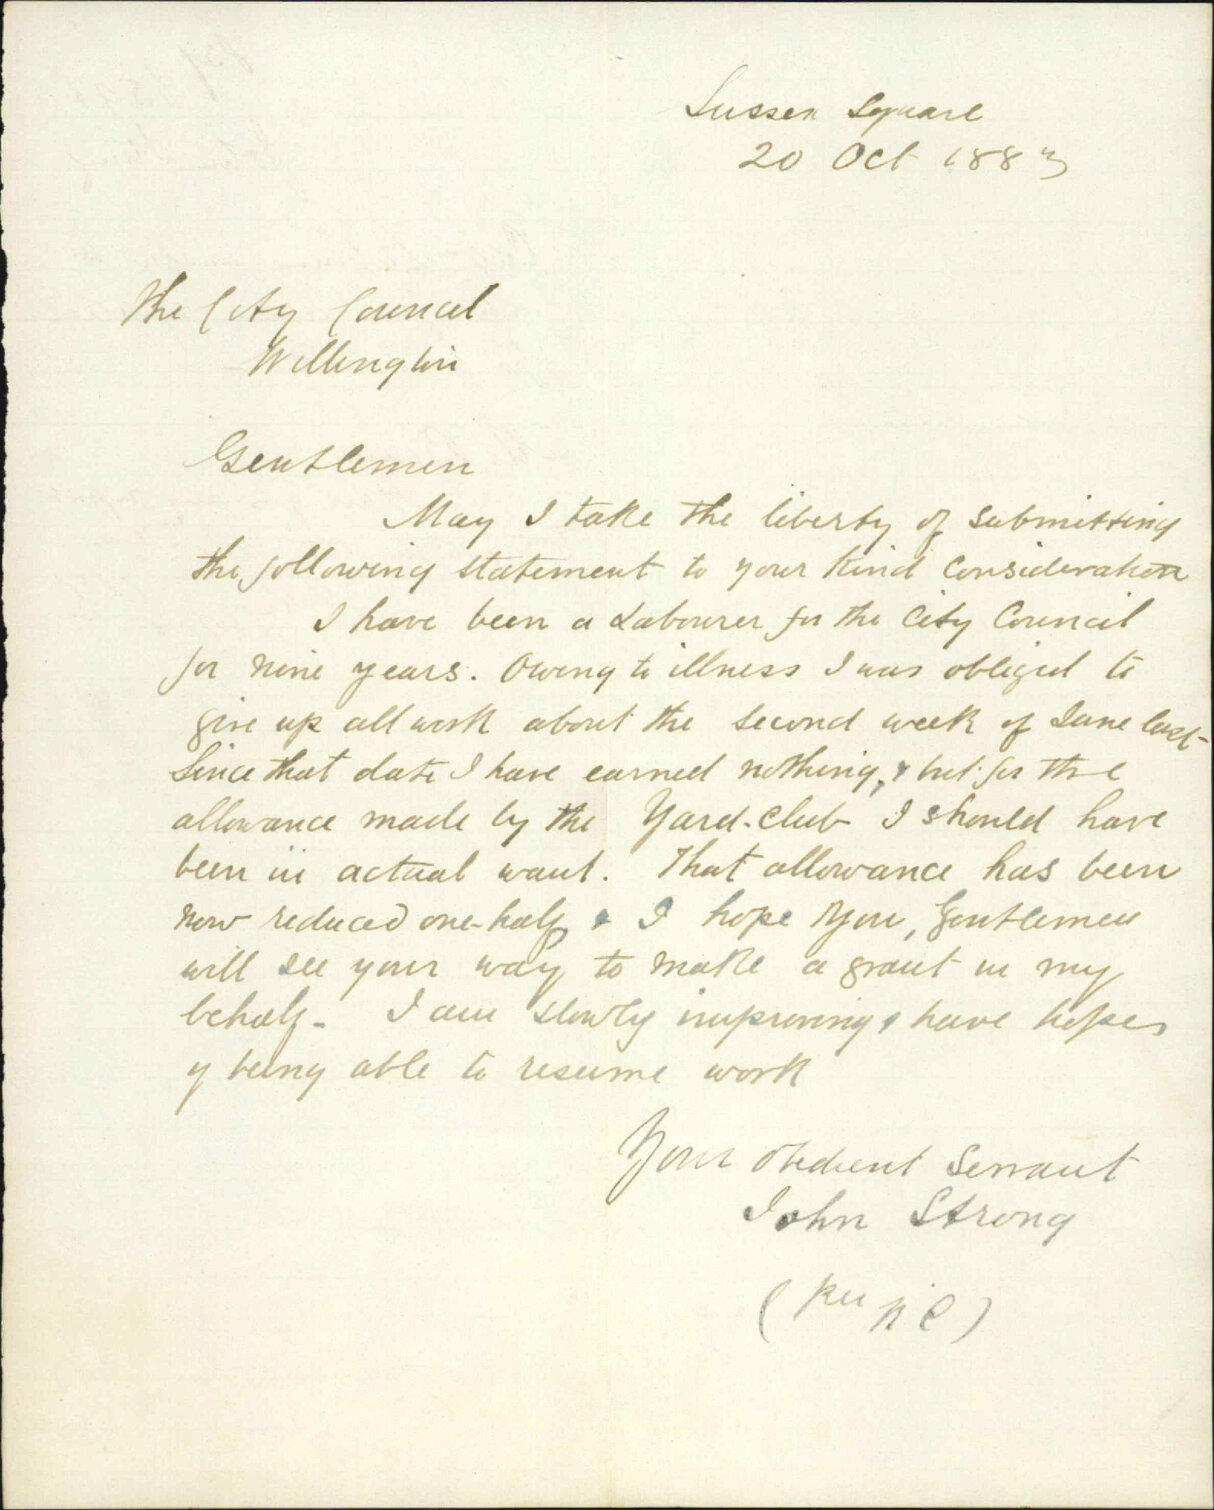 Sussex Square
20 Oct 1883
The City Council
Wellington
Gentlemen
May I take the liberty of submitting
the following statement to your kind consideration
I have been a Labourer for the City Council
for nine years. Owing to illness I was obliged to
give up all work about the second week of June last-
Since that date I have earned nothing, & but for the
allowance made by the Yard-Club I should have
been in actual want. That allowance has been
now reduced one-half & I hope you, Gentlemen
will see your way to make a grant in my
behalf- I am slowly improving & have hopes
of being able to resume work
Your obedient Servant
John Strong
(per